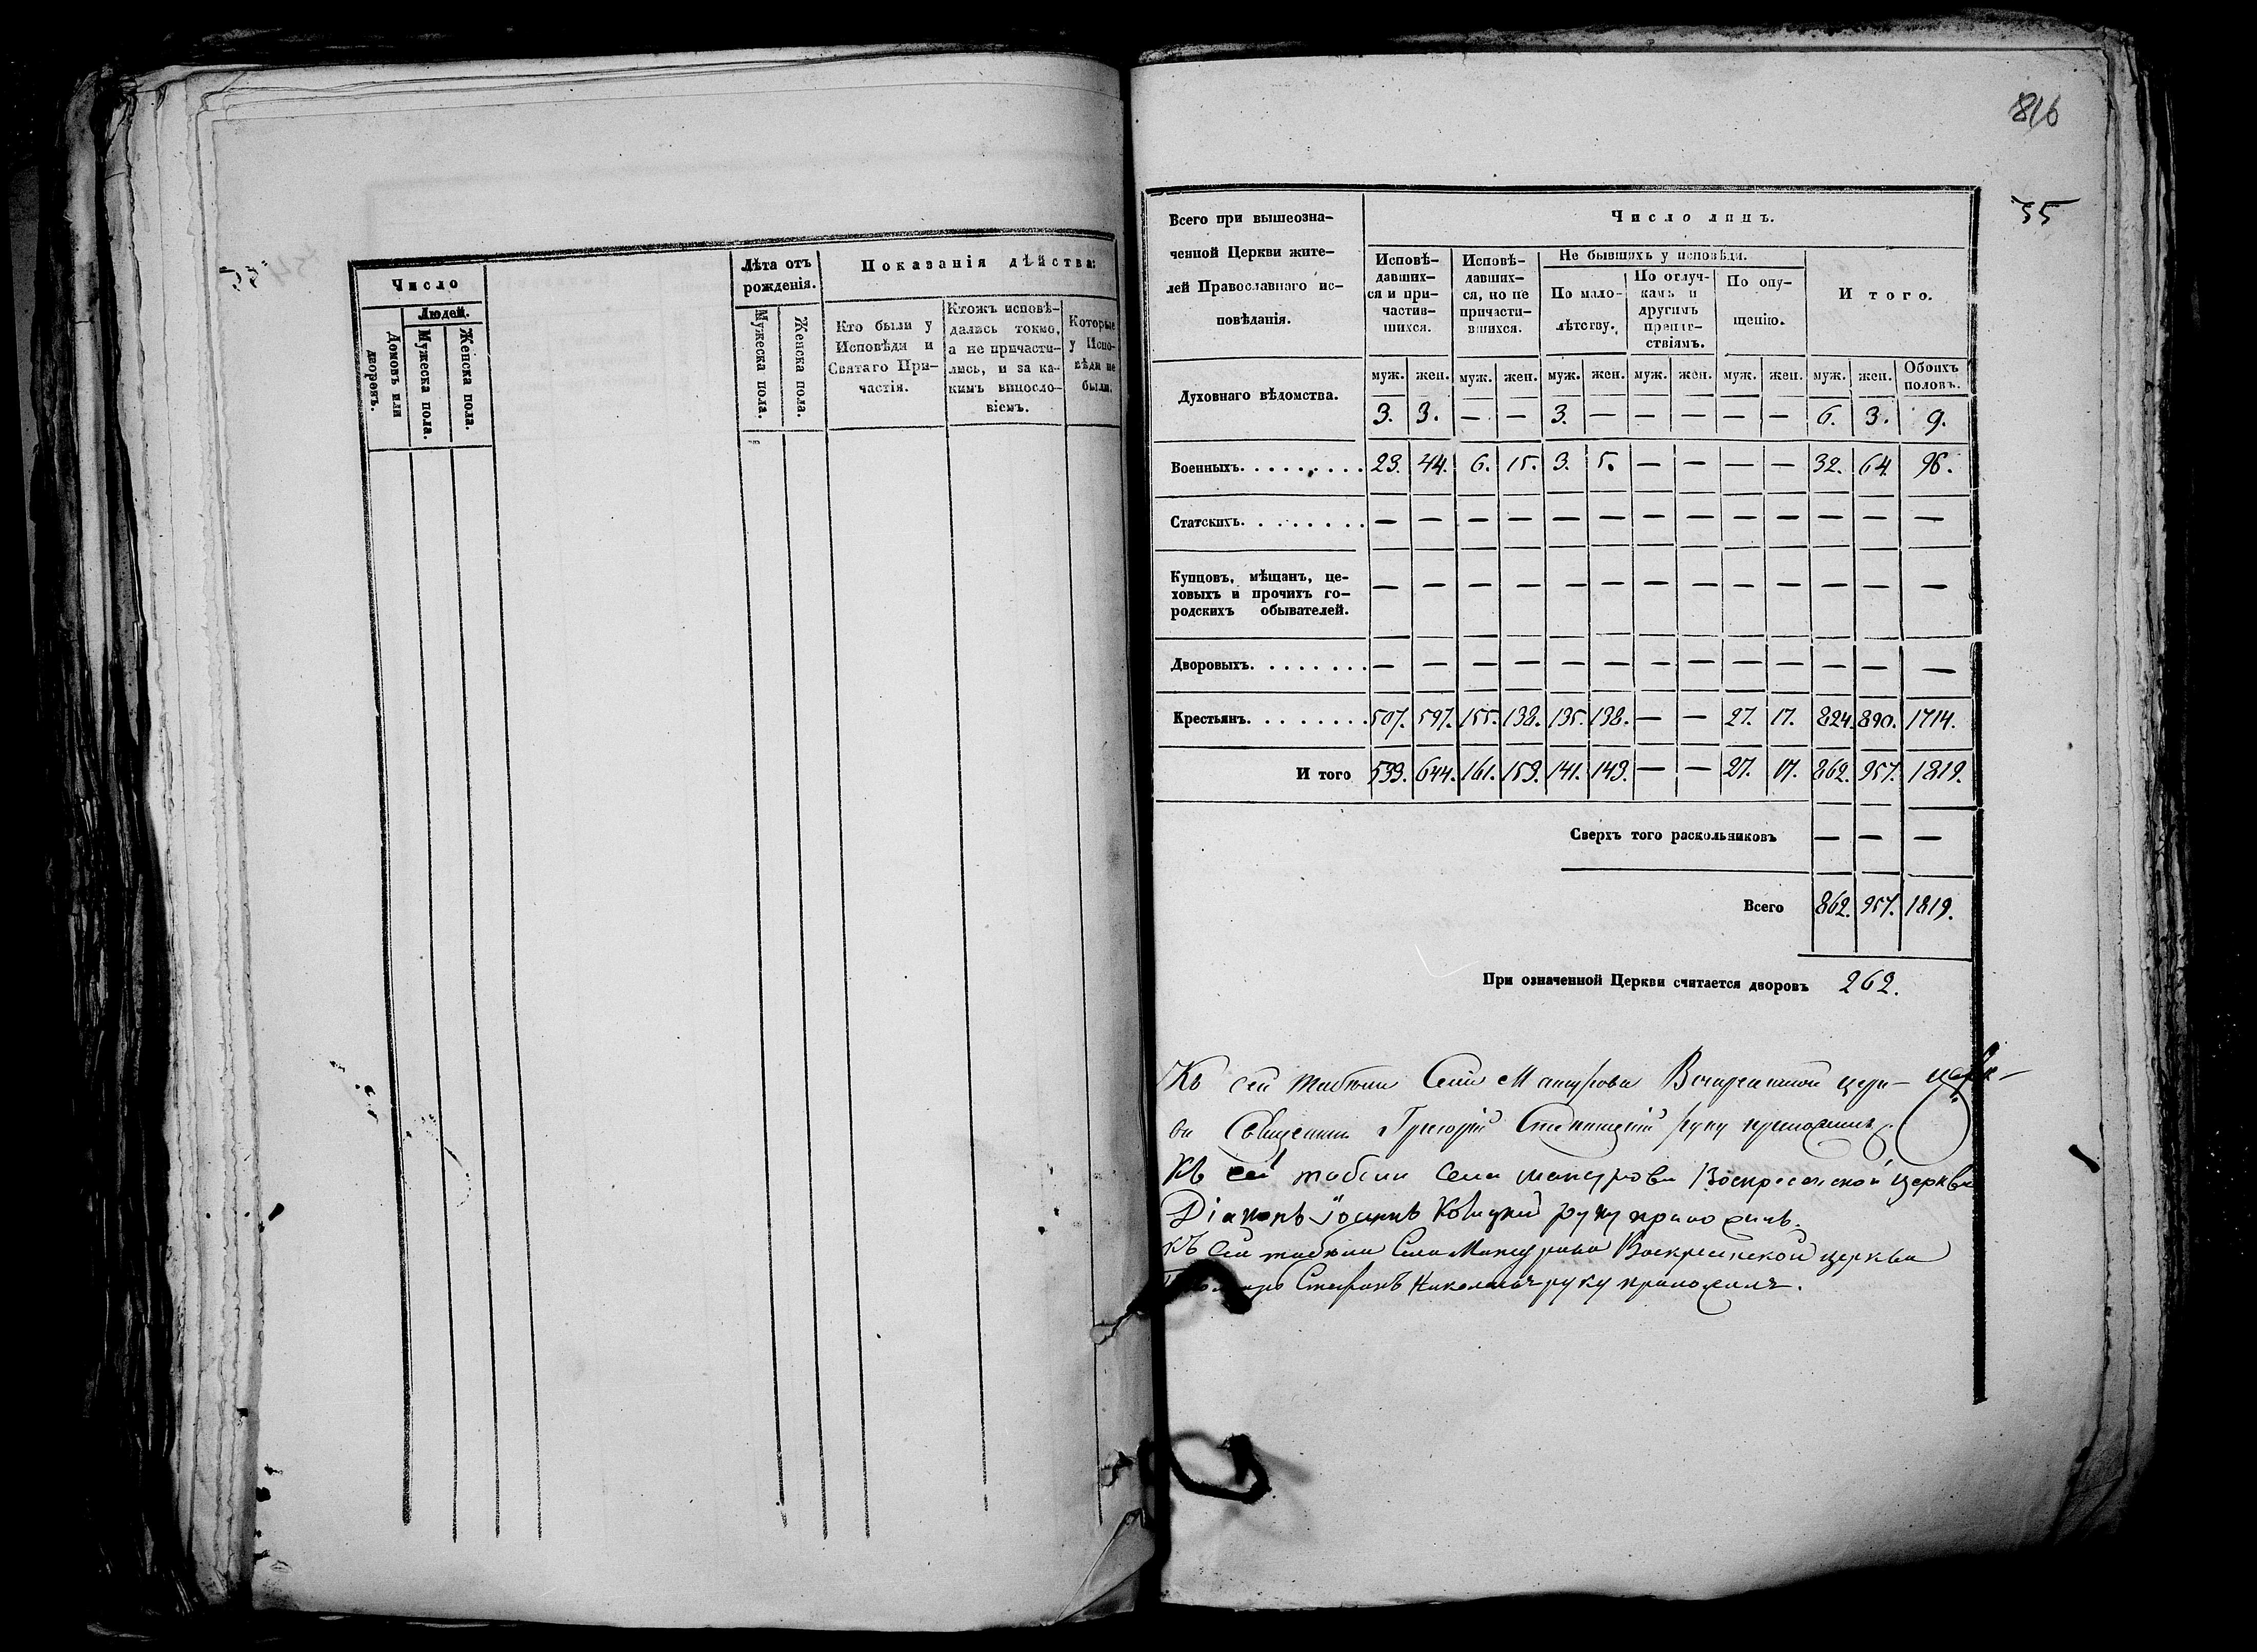 816
55
Число
Людей.
Домовъ или дворовъ.
Мужеска пола.
Женска пола.
Лѣта отъ рожденія.
Мужеска пола.
Женска пола.
Показанія дѣйства:
Кто были у
Исповѣди и
Святаго При-
частія.
Ктожъ исповѣ-
дались токмо,
а не причасти-
лись, и за ка-
кимъ винosло-
віемъ.
Которые
у Испо-
вѣди не
были.
Всего при вышеозна-
ченной Церкви жите-
лей Православнаго ис-
повѣданія.
Число лицъ.
Исповѣ-
давших-
ся и при-
частив-
шихся.
Исповѣ-
давших-
ся, но не
причасти-
вшихся.
Не бывшихъ у исповѣди.
По мало-
лѣтству.
По отлуч-
камъ и
другимъ
препят-
ствіямъ.
По опу-
щенію.
Итого.
муж. жен. муж. жен. муж. жен. муж. жен. муж. жен. муж. жен. Обоихъ половъ.
Духовнаго вѣдомства. 3. 3. — — 3. — — — — — 6. 3. 9.
Военныхъ. . . . . . . . . 23. 44. 6. 15. 3. 5. — — — — 32. 64. 96.
Статскихъ. . . . . . . . — — — — — — — — — — — — —
Купцовъ, мѣщанъ, це-
ховыхъ и прочихъ го- — — — — — — — — — — — — —
родскихъ обывателей.
Дворовыхъ. . . . . . . . — — — — — — — — — — — — —
Крестьянъ. . . . . . . . 507. 597. 155. 138. 135. 138. — — 27. 17. 824. 890. 1714.
И того 539. 644. 161. 153. 141. 143. — — 27. 17. 862. 957. 1819.
Сверхъ того раскольниковъ — — —
Всего 862. 957. 1819.
При означенной Церкви считается дворовъ 262.
Къ сей табели Села Мансурова церк-
ви Священник Григорій руку приложилъ.
Къ сей табели села мансурова Воскресенской церкви
Діаконъ Іоаннъ руку приложилъ.
Къ сей табели Села Мансурова Воскресенской церкви
Стефанъ руку приложилъ.